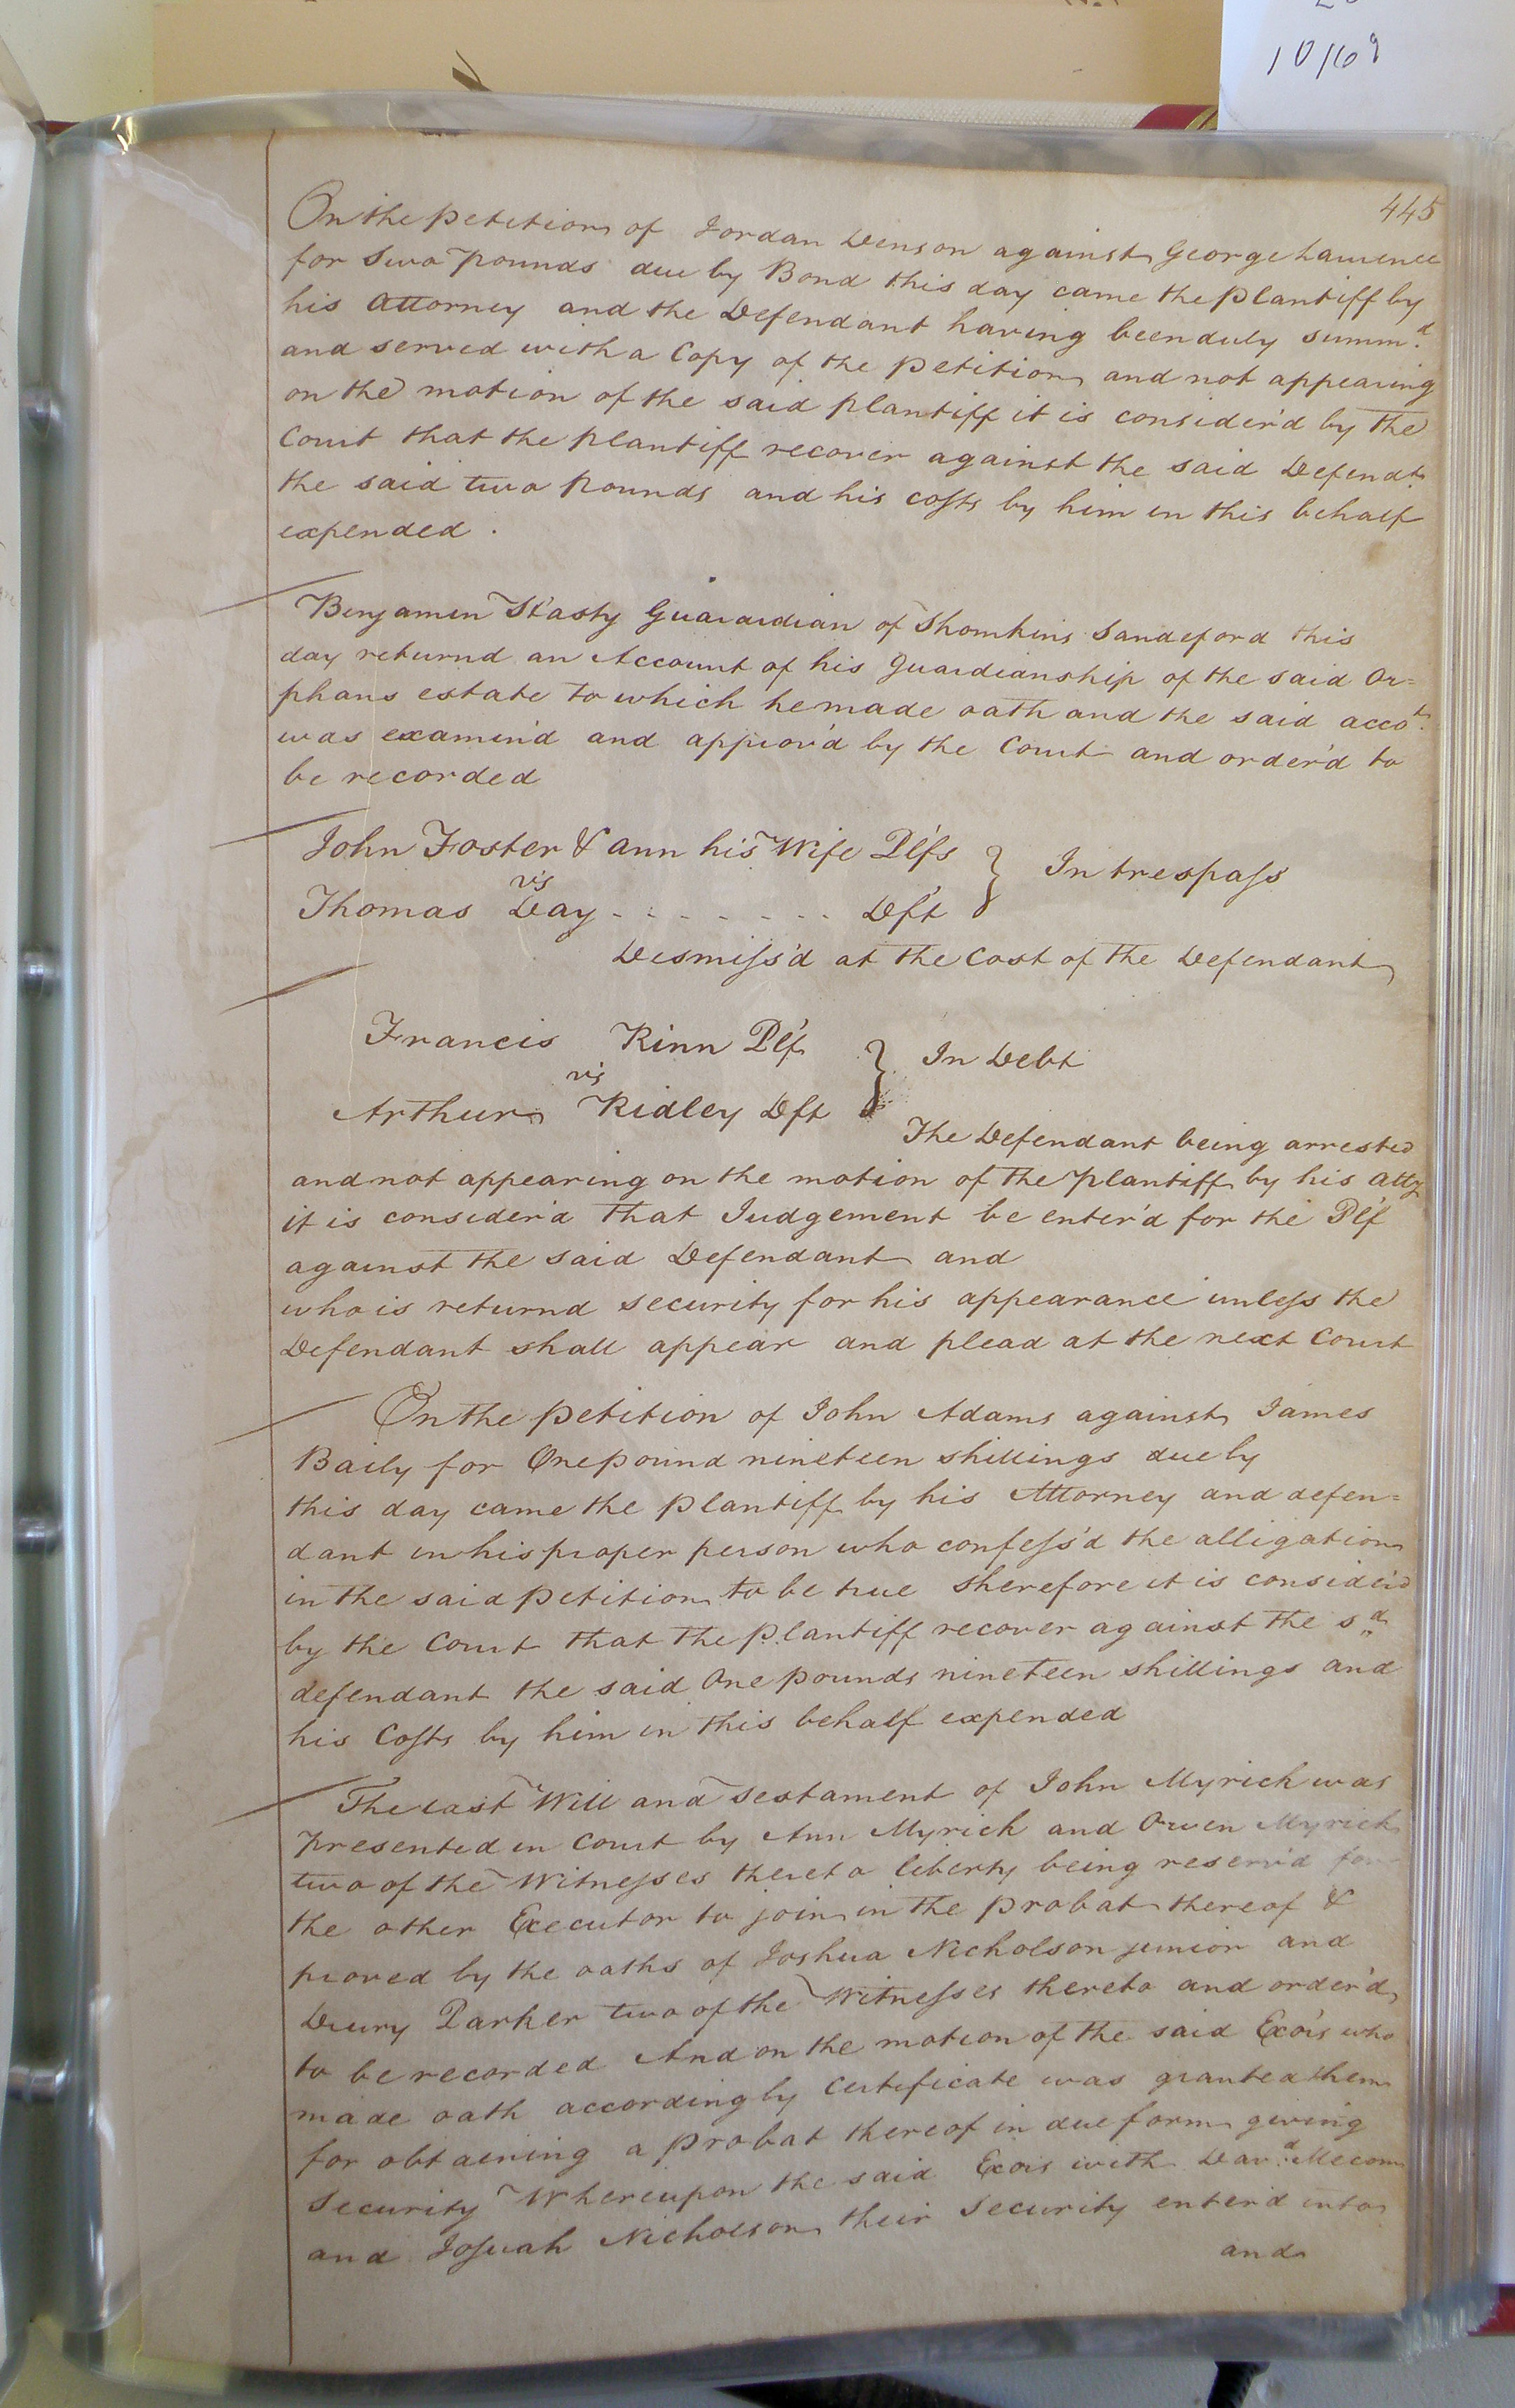 10/69
445
On the petition of Jordan Denson against George Lawrence
for Two pounds due by Bond this day came the plantiff by
his Attorney and the Defendant having been duly summ.d
and served with a Copy of the petition and not appearing
on the motion of the said plantiff it is consider'd by the
Court that the plantiff recover against the said Defendt.
the said two pounds and his costs by him in this behalf
expended.
Benjamin Stasty Guaraidian of Thomkins Sandeford this
day returnd an Account of his Guardianship of the said Or=
phans estate to which he made oath and the said accot.
was examin'd and approv'd by the Court and order'd to
be recorded
John Foster & Ann his Wife Plfs } In trespass
vs
Thomas Day - - - - - - - Dft
Dismiss'd at the Cost of the Defendant
Francis Rinn Plf } In Debt
vs
Arthur Ridley Dft
The Defendant being arrested
and not appearing on the motion of the plantiff by his Atty
it is consider'd that Judgement be enter'd for the Plf
against the said Defendant and
who is returnd security for his appearance unless the
Defendant shall appear and plead at the next Court
On the petition of John Adams against James
Baily for One pound nineteen shillings due by
this day came the plantiff by his Attorney and defen=
dant in his proper person who confess'd the alligation
in the said petition to be true Therefore it is consider'd
by the Court that the plantiff recover against the sd
defendant the said One pounds nineteen shillings and
his Costs by him in this behalf expended
The last Will and Testament of John Myrick was
presented in Court by Ann Myrick and Owen Myrick
two of the Witnesses thereto liberty being reserv'd for
the other Executor to join in the probat thereof &
proved by the oaths of Joshua Nicholson junior and
Drury Parker two of the Witnesses thereto and order'd
to be recorded And on the motion of the said Exors who
made oath accordingly Certificate was granted them
for obtaining a probat thereof in due form giving
Security Whereupon the said Exors with Dav.d Mecom
and Josuah Nicholson their Security enter'd into
and